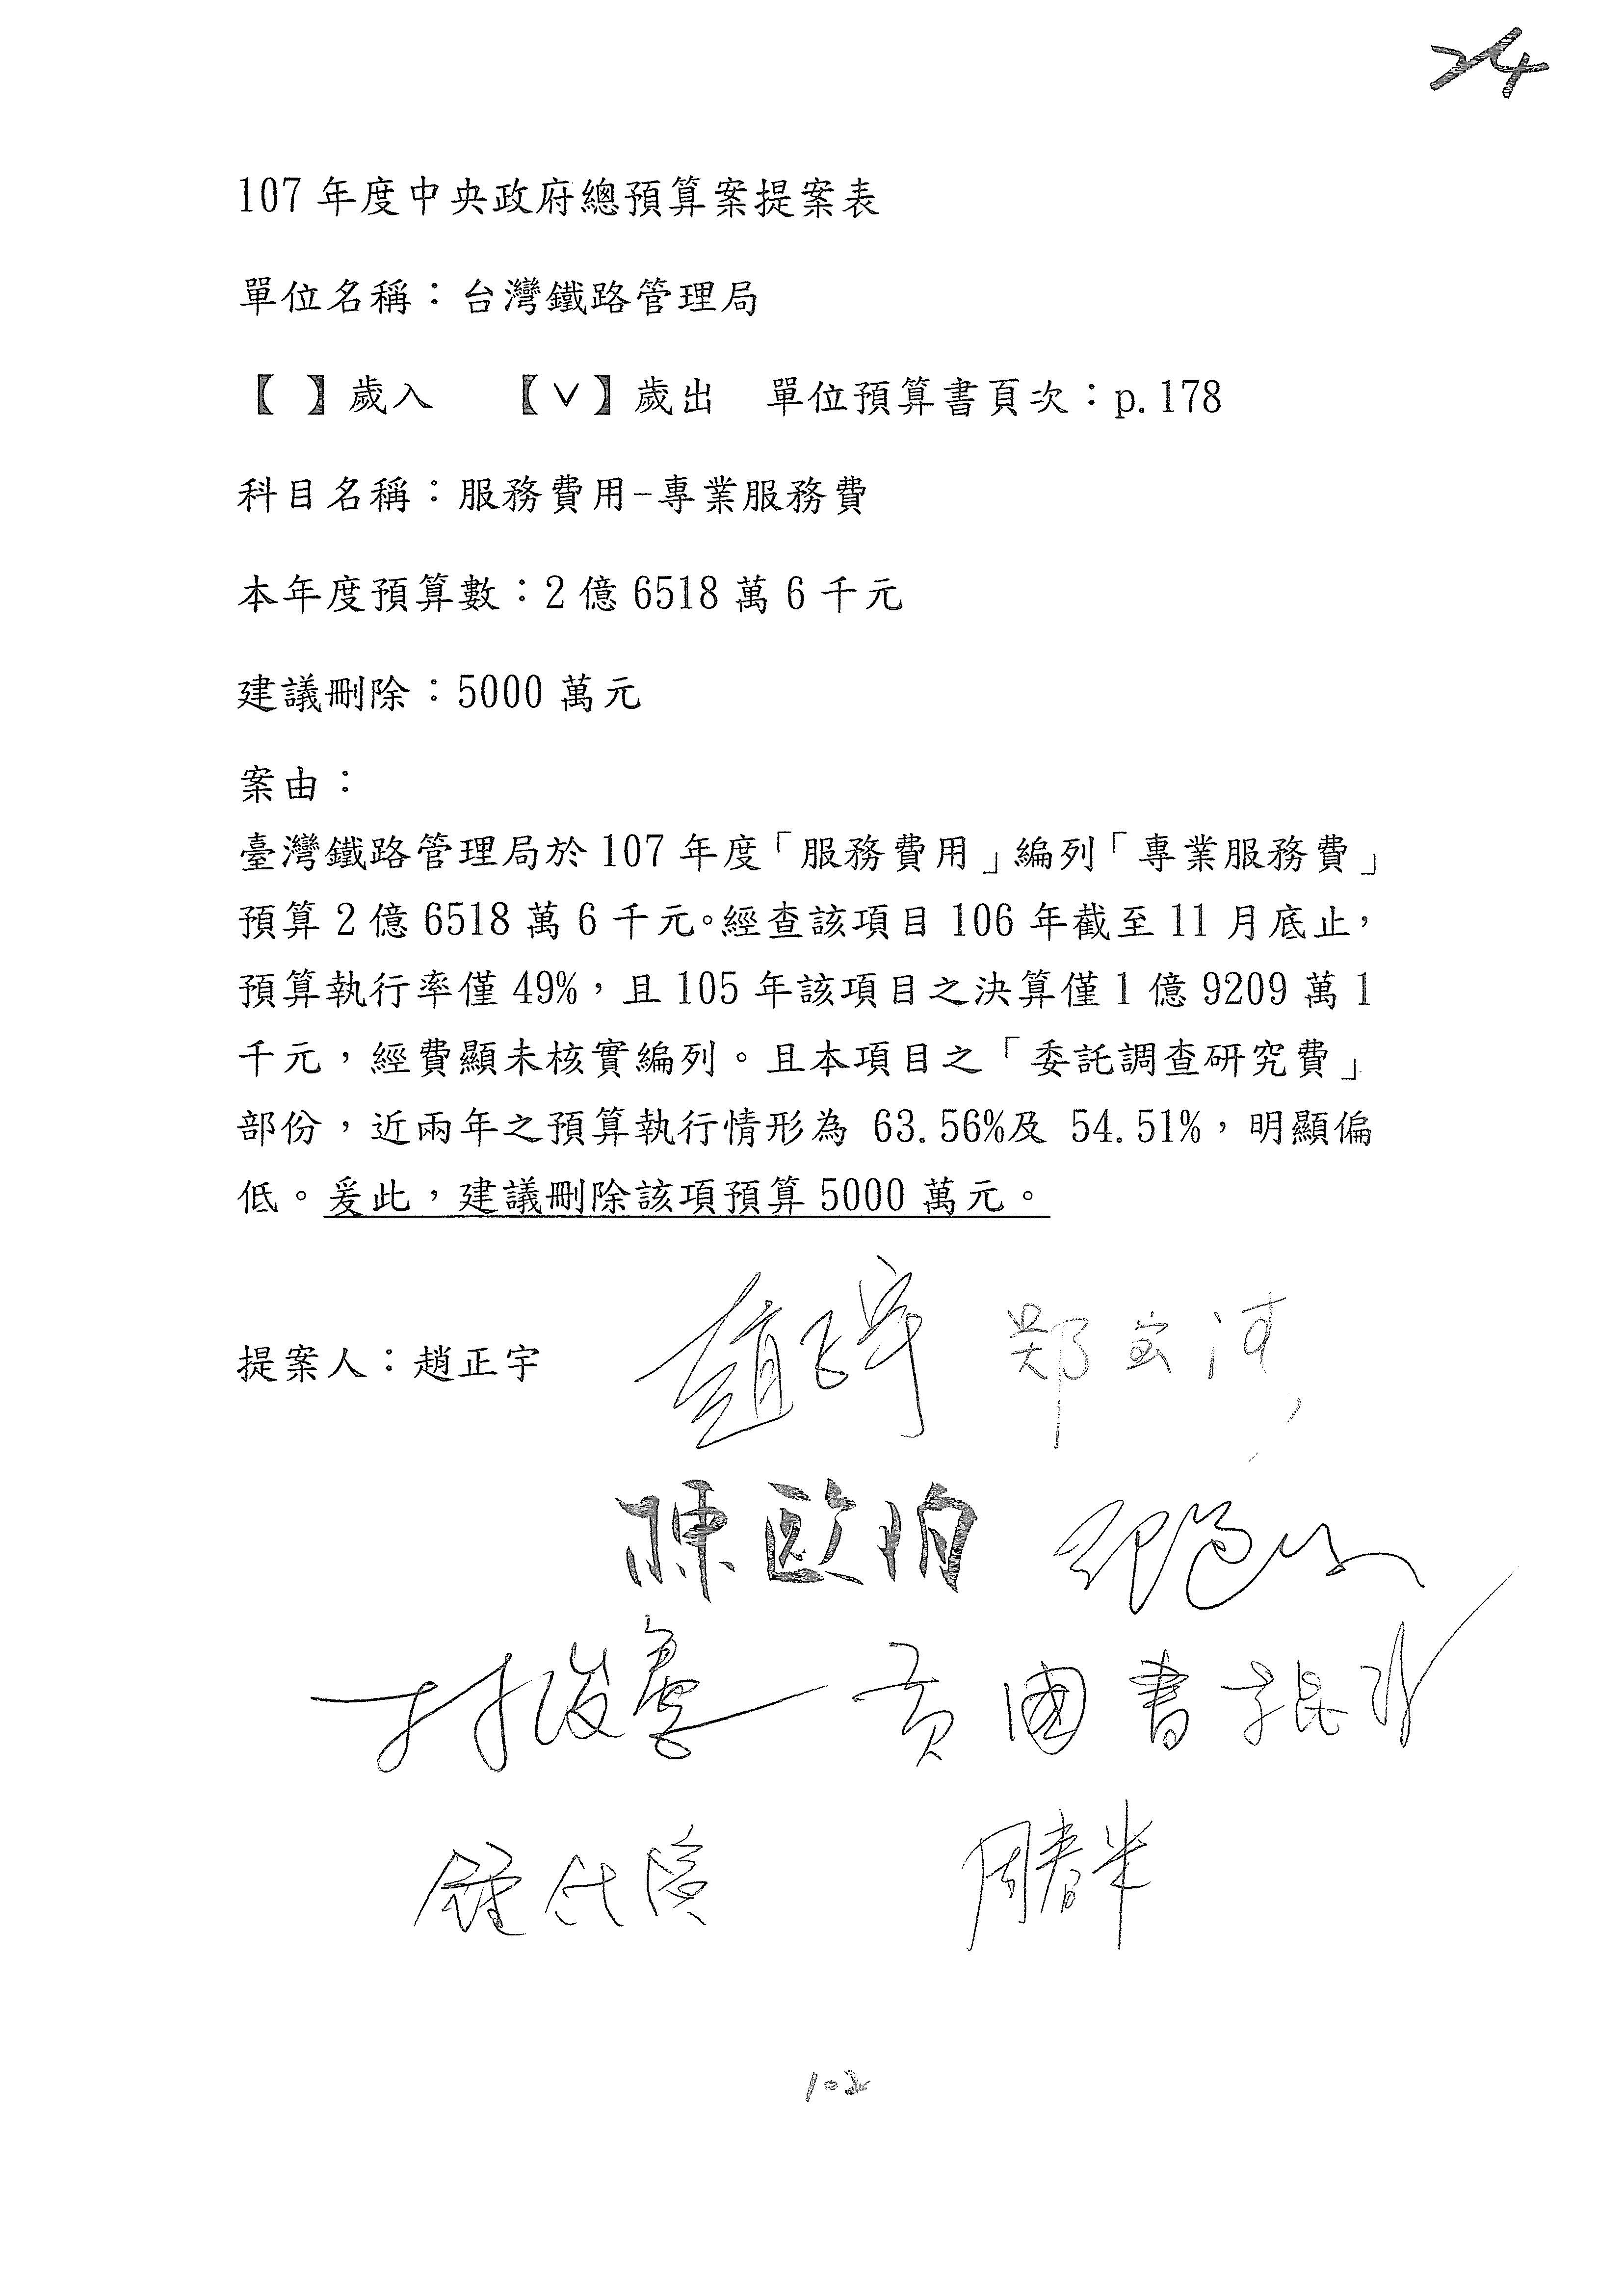 24
107 年度中央政府總預算案提案表
單位名稱：台灣鐵路管理局
【 】歲入 【∨】歲出 單位預算書頁次：p.178
科目名稱：服務費用-專業服務費
本年度預算數：2 億 6518 萬 6 千元
建議刪除：5000 萬元
案由：
臺灣鐵路管理局於 107 年度「服務費用」編列「專業服務費」
預算 2 億 6518 萬 6 千元。經查該項目 106 年截至 11 月底止，
預算執行率僅 49%，且 105 年該項目之決算僅 1 億 9209 萬 1
千元，經費顯未核實編列。且本項目之「委託調查研究費」
部份，近兩年之預算執行情形為 63.56%及 54.51%，明顯偏
低。爰此，建議刪除該項預算 5000 萬元。
提案人：趙正宇 趙正宇 鄭宝清
陳歐珀
林俊憲 黃國書
周春米
102